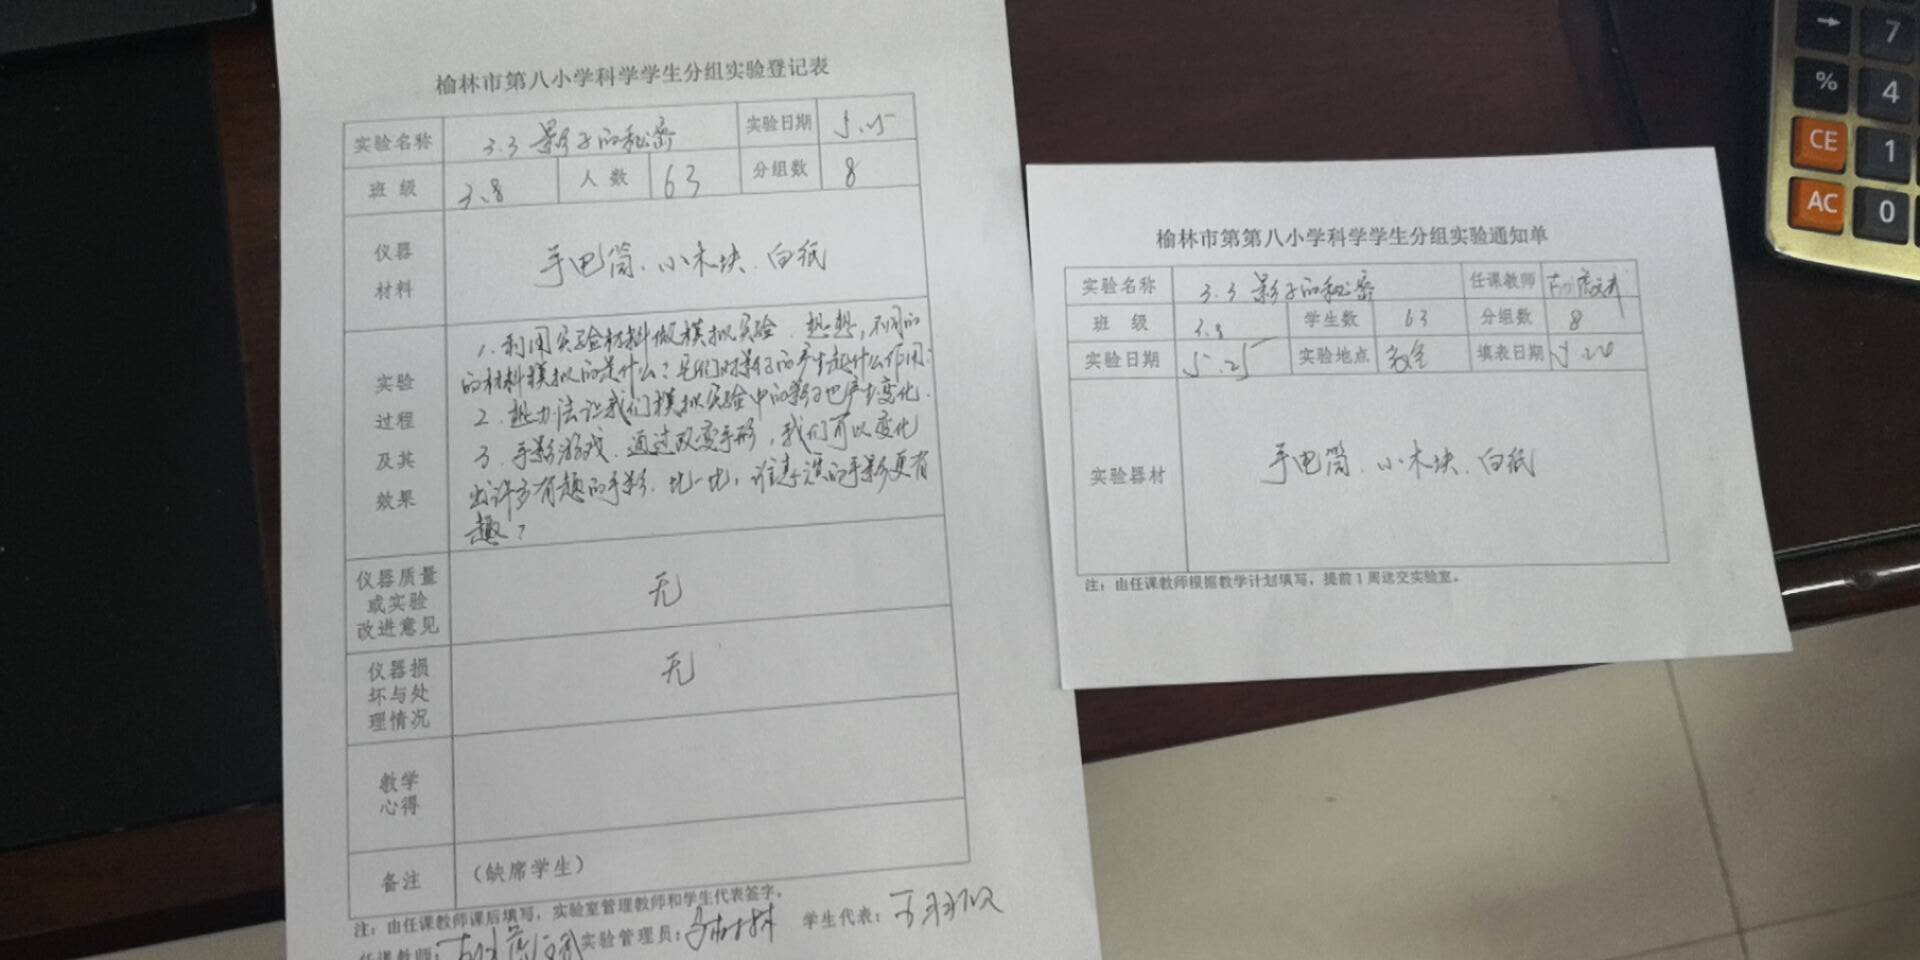 榆林市第八小学科学学生分组实验登记表
实验名称 3.3 影子的秘密 实验日期 5.25
班 级 3.8 人 数 63 分组数 8
仪器
材料
手电筒、小木块、白纸
实验
过程
及其
效果
1. 利用实验材料做模拟实验. 想想,不同的
的材料模拟的是什么?它们对影子的产生起什么作用?
2. 想办法让我们模拟实验中的影子也产生变化.
3. 手影游戏. 通过改变手形,我们可以变化
出许多有趣的手影. 比一比,谁表演的手影更有
趣?
仪器质量
或实验
改进意见
无
仪器损
坏与处
理情况
无
教学
心得
备注 (缺席学生)
注:由任课教师课后填写,实验室管理教师和学生代表签字。
任课教师: 实验管理员: 学生代表:
榆林市第第八小学科学学生分组实验通知单
实验名称 3.3 影子的秘密 任课教师
班 级 3.8 学生数 63 分组数 8
实验日期 5.25 实验地点 教室 填表日期
实验器材 手电筒、小木块、白纸
注:由任课教师根据教学计划填写,提前1周送交实验室。
→ 7
% 4
CE 1
AC 0